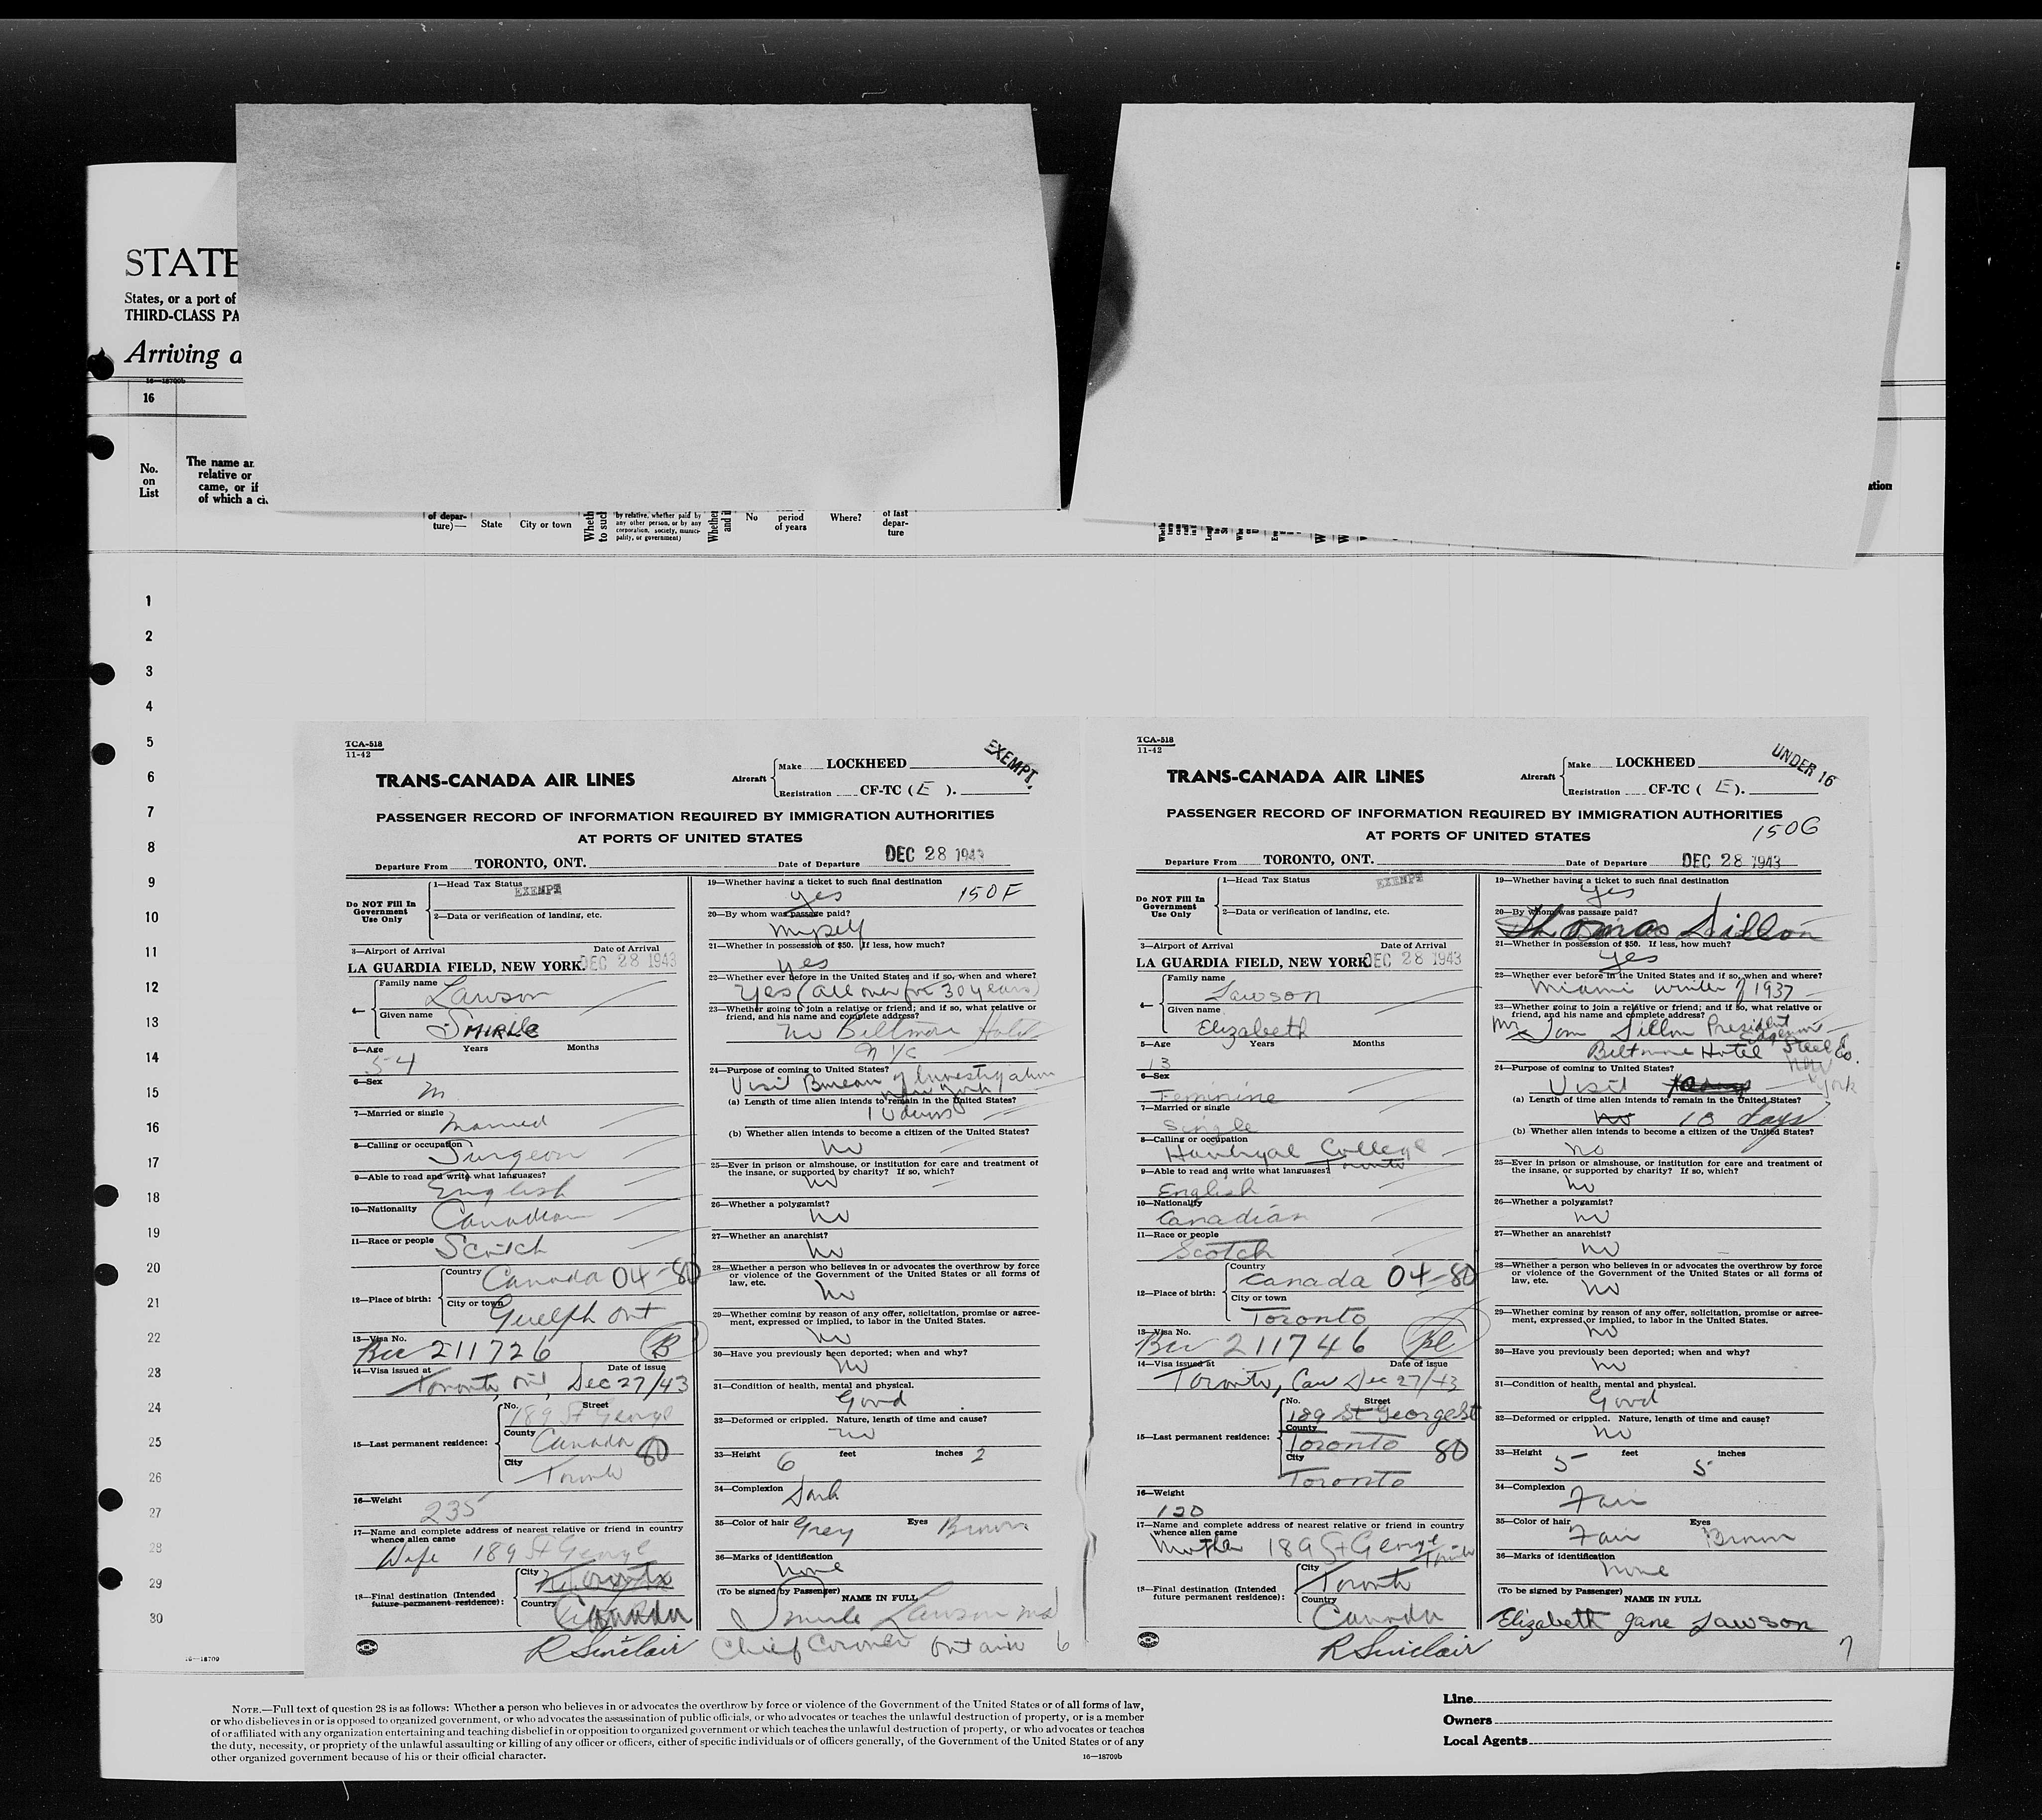 STATE
States, or a port of
THIRD-CLASS PA
Arriving a
16—18709b
16
No.
on
List
The name an
relative or
came, or if
of which a ci
of depar-
ture)—
State
City or town
by relative, whether paid by
any other person, or by any
corporation, society, munici-
pality, or government)
No
period
of years
Where?
of last
depar-
ture
ation
1
2
3
4
5
6
7
8
9
10
11
12
13
14
15
16
17
18
19
20
21
22
23
24
25
26
27
28
29
30
16—18709
TCA-518
11-42
TRANS-CANADA AIR LINES
Aircraft
Make LOCKHEED
Registration CF-TC ( E ).
EXEMPT.
PASSENGER RECORD OF INFORMATION REQUIRED BY IMMIGRATION AUTHORITIES
AT PORTS OF UNITED STATES
Departure From TORONTO, ONT. Date of Departure DEC 28 1943
Do NOT Fill In
Government
Use Only
1—Head Tax Status EXEMPT
2—Data or verification of landing, etc.
3—Airport of Arrival Date of Arrival
LA GUARDIA FIELD, NEW YORK. DEC 28 1943
4—
Family name
Lawson
Given name
SMIRLE
5—Age Years Months
54
6—Sex
M
7—Married or single
Married
8—Calling or occupation
Surgeon
9—Able to read and write what languages?
English
10—Nationality
Canadian
11—Race or people
Scotch
12—Place of birth:
Country
Canada 04-80
City or town
Guelph Ont
13—Visa No.
211726 B
14—Visa issued at Date of issue
Toronto, Ont, Dec 27/43
15—Last permanent residence:
No. Street
189 St George
County
Canada 80
City
Toronto
16—Weight
235
17—Name and complete address of nearest relative or friend in country
whence alien came
Wife 189 St George
18—Final destination (Intended
future permanent residence):
City
Toronto
Country
Canada
R Sinclair
19—Whether having a ticket to such final destination
yes 150F
20—By whom was passage paid?
Myself
21—Whether in possession of $50. If less, how much?
Yes
22—Whether ever before in the United States and if so, when and where?
Yes (all over for 30 years)
23—Whether going to join a relative or friend; and if so, what relative or
friend, and his name and complete address?
no Biltmore Hotel
NYC
24—Purpose of coming to United States?
Visit Bureau of Investigation
New York
(a) Length of time alien intends to remain in the United States?
10 days
(b) Whether alien intends to become a citizen of the United States?
no
25—Ever in prison or almshouse, or institution for care and treatment of
the insane, or supported by charity? If so, which?
no
26—Whether a polygamist?
no
27—Whether an anarchist?
no
28—Whether a person who believes in or advocates the overthrow by force
or violence of the Government of the United States or all forms of
law, etc.
no
29—Whether coming by reason of any offer, solicitation, promise or agree-
ment, expressed or implied, to labor in the United States.
no
30—Have you previously been deported; when and why?
no
31—Condition of health, mental and physical.
Good
32—Deformed or crippled. Nature, length of time and cause?
no
33—Height 6 feet inches 2
34—Complexion
Dark
35—Color of hair Grey Eyes Brown
36—Marks of identification
none
(To be signed by Passenger) NAME IN FULL
Smirle Lawson MD
Chief Coroner Ontario 6
TCA-518
11-42
TRANS-CANADA AIR LINES
Aircraft
Make LOCKHEED
Registration CF-TC ( E ).
UNDER 16
PASSENGER RECORD OF INFORMATION REQUIRED BY IMMIGRATION AUTHORITIES
AT PORTS OF UNITED STATES
150G
Departure From TORONTO, ONT. Date of Departure DEC 28 1943
Do NOT Fill In
Government
Use Only
1—Head Tax Status EXEMPT
2—Data or verification of landing, etc.
3—Airport of Arrival Date of Arrival
LA GUARDIA FIELD, NEW YORK. DEC 28 1943
4—
Family name
Lawson
Given name
Elizabeth
5—Age Years Months
13
6—Sex
Feminine
7—Married or single
Single
8—Calling or occupation
College
Toronto
9—Able to read and write what languages?
English
10—Nationality
Canadian
11—Race or people
Scotch
12—Place of birth:
Country
Canada 04-80
City or town
Toronto
13—Visa No.
211746
14—Visa issued at Date of issue
Toronto, Can Dec 27/43
15—Last permanent residence:
No. Street
189 St George St
County
Toronto 80
City
Toronto
16—Weight
120
17—Name and complete address of nearest relative or friend in country
whence alien came
Mother 189 St George Toronto
18—Final destination (Intended
future permanent residence):
City
Toronto
Country
Canada
R Sinclair
19—Whether having a ticket to such final destination
yes
20—By whom was passage paid?
Thomas Dillon
21—Whether in possession of $50. If less, how much?
yes
22—Whether ever before in the United States and if so, when and where?
Miami winter of 1937
23—Whether going to join a relative or friend; and if so, what relative or
friend, and his name and complete address?
Mr Tom Dillon President
Biltmore Hotel Steel Co.
New York
24—Purpose of coming to United States?
Visit
(a) Length of time alien intends to remain in the United States?
no 10 days
(b) Whether alien intends to become a citizen of the United States?
no
25—Ever in prison or almshouse, or institution for care and treatment of
the insane, or supported by charity? If so, which?
no
26—Whether a polygamist?
no
27—Whether an anarchist?
no
28—Whether a person who believes in or advocates the overthrow by force
or violence of the Government of the United States or all forms of
law, etc.
no
29—Whether coming by reason of any offer, solicitation, promise or agree-
ment, expressed or implied, to labor in the United States.
no
30—Have you previously been deported; when and why?
no
31—Condition of health, mental and physical.
Good
32—Deformed or crippled. Nature, length of time and cause?
no
33—Height 5 feet 5 inches
34—Complexion
Fair
35—Color of hair Fair Eyes Brown
36—Marks of identification
none
(To be signed by Passenger) NAME IN FULL
Elizabeth Jane Lawson
7
NOTE.—Full text of question 28 is as follows: Whether a person who believes in or advocates the overthrow by force or violence of the Government of the United States or of all forms of law,
or who disbelieves in or is opposed to organized government, or who advocates the assassination of public officials, or who advocates or teaches the unlawful destruction of property, or is a member
of or affiliated with any organization entertaining and teaching disbelief in or opposition to organized government or which teaches the unlawful destruction of property, or who advocates or teaches
the duty, necessity, or propriety of the unlawful assaulting or killing of any officer or officers, either of specific individuals or of officers generally, of the Government of the United States or of any
other organized government because of his or their official character.
16—18709b
Line
Owners
Local Agents